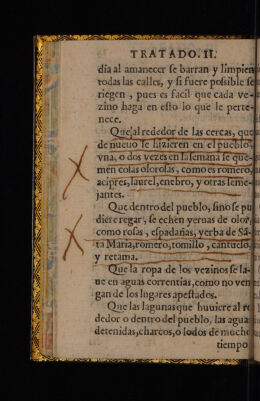 TRATADO. II.
dia al amanecer ſe barran y limpien
todas las calles, y ſi fuere poſsible ſe
riegen , pues es facil que cada ve-
zino haga en eſto lo que le perte-
nece.
Que al rededor de las cercas, que
de nueuo ſe hizieren en el pueblo,
vna, o dos vezes en la ſemana ſe que-
men coſas oloroſas, como es romero,
acipres, laurel, enebro, y otras ſeme-
jantes.
Que dentro del pueblo, ſino ſe pu
diere regar, ſe echen yeruas de olor,
como roſas , eſpadañas, yerba de Sã-
ta Maria, romero, tomillo , cantueſo,
y retama.
Que la ropa de los vezinos ſe la-
ue en aguas corrientias, como no ven
gan de los lugares apeſtados.
Que las lagunas que huuiere al re
dedor o dentro del pueblo, las aguas
detenidas, charcos, o lodos de mucho
tiempo